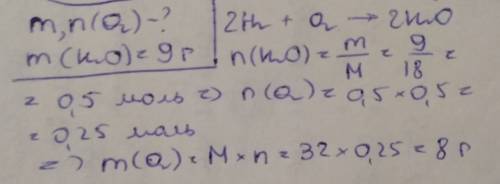 m,n(O₂)-? 2H₂ + O₂ → 2H₂O
m(H₂O)=9г n(H₂O)= m/M = 9/18 =
= 0,5 моль => n(O₂)= 0,5×0,5=
= 0,25 моль
=> m(O₂)= M×n = 32×0,25 = 8 г